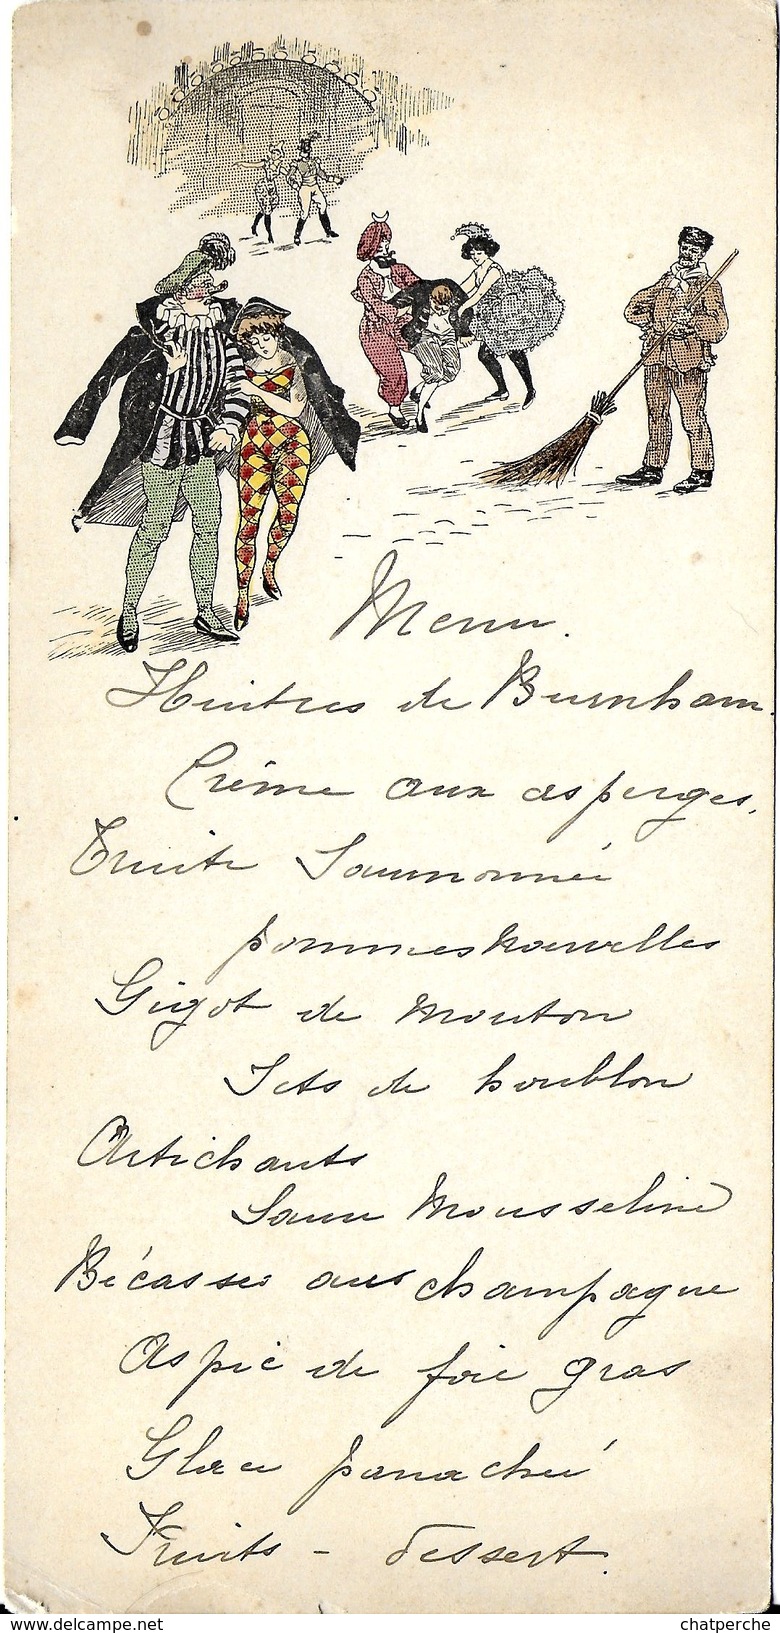 Menu.
Huitres de Burnham.
Crème aux asperges.
Truite Saumonnée
pommes nouvelles
Gigot de mouton
Jets de houblon
Artichauts
Sauce Mousseline
Bécasses au champagne
Aspic de foie gras
Glace panachée
Fruits - dessert.
www.delcampe.net
chatperche